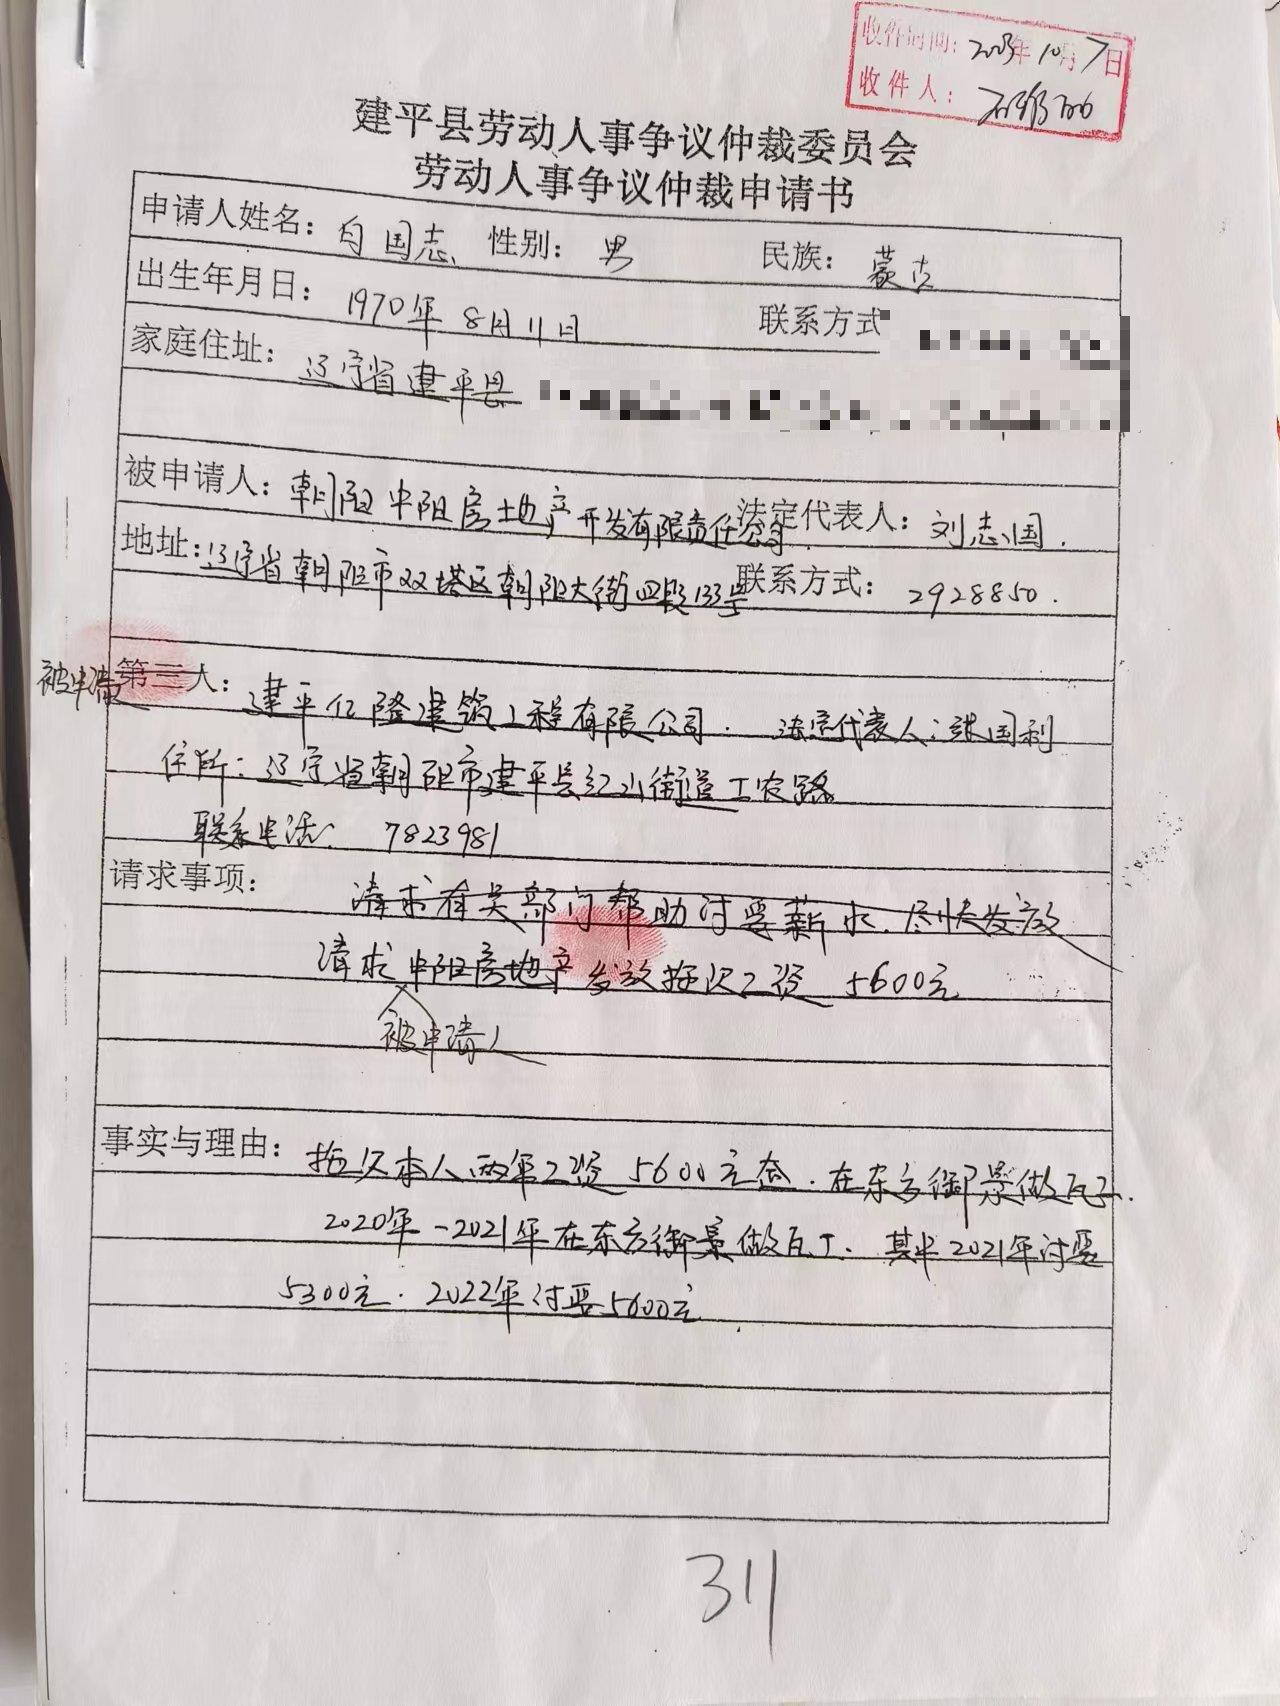 收件时间：2023年10月7日
收件人：
建平县劳动人事争议仲裁委员会
劳动人事争议仲裁申请书
申请人姓名：白国志 性别：男 民族：蒙古
出生年月日：1970年8月11日 联系方式
家庭住址：辽宁省建平县
被申请人：朝阳中阳房地产开发有限责任公司 法定代表人：刘志国.
地址：辽宁省朝阳市双塔区朝阳大街四段133号 联系方式：2928850.
被申请 第三人：建平亿隆建筑工程有限公司. 法定代表人：张国利
住所：辽宁省朝阳市建平县红山街道工农路
联系电话：7823981
请求事项：请求有关部门帮助讨要薪水.尽快发放
请求中阳房地产发放拖欠工资5600元
被申请人
事实与理由：拖欠本人两年工资5600元在.在东方御景做瓦工.
2020年-2021年在东方御景做瓦工.其中2021年讨要
5300元.2022年讨要5600元.
311